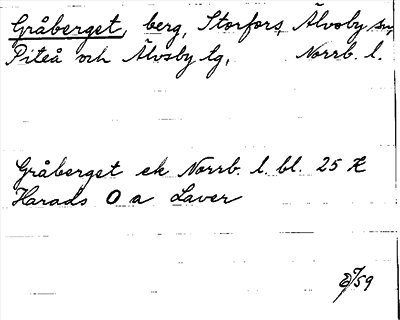 Gråberget, berg, Storfors, Älvsby sn,
Piteå och Älvsby tg, Norrb. l.
Gråberget ek Norrb. l. bl. 25 H
Harads O a Laver
59